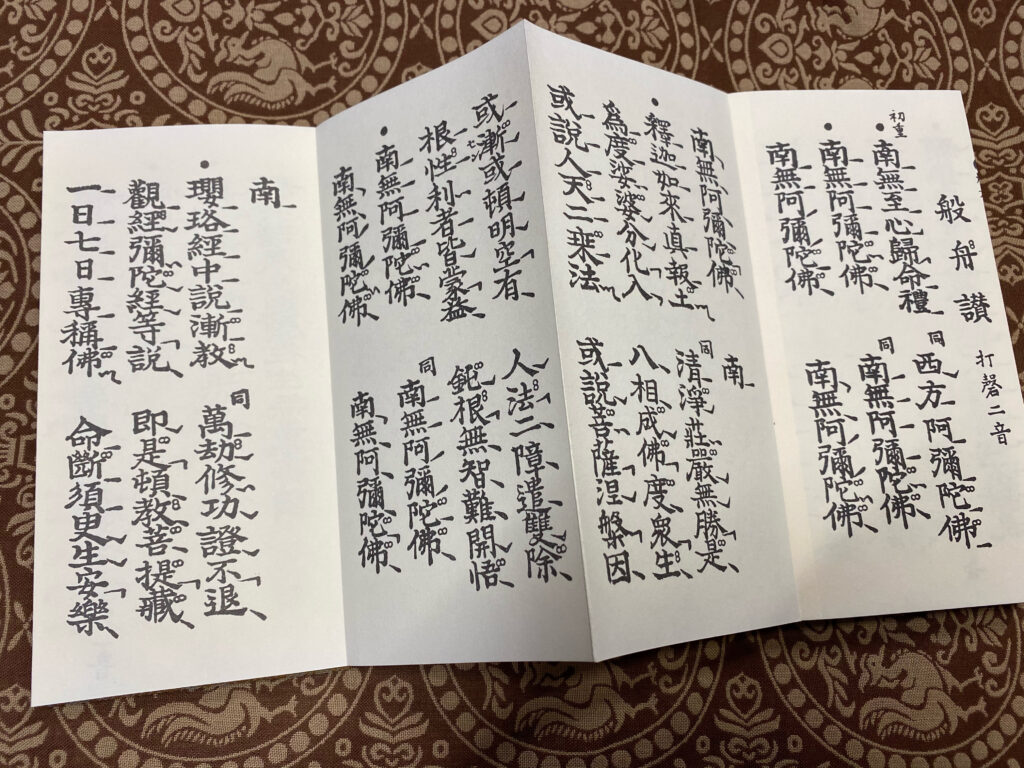 般舟讃 打磬二音
初重
南無至心歸命禮 同 西方阿彌陀佛
南無阿彌陀佛 同 南無阿彌陀佛
南無阿彌陀佛 南無阿彌陀佛
南無阿彌陀佛 南
釋迦如來真報土 同 清淨莊嚴無勝是
為度娑婆分化入 八相成佛度衆生
或説人天二乗法 或説菩薩涅槃因
或漸或頓明空有 人法二障遣雙除
根性利者皆蒙益 鈍根無智難開悟
南無阿彌陀佛 同 南無阿彌陀佛
南無阿彌陀佛 南無阿彌陀佛
南
瓔珞經中説漸教 同 萬劫修功證不退
觀經彌陀經等説 即是頓教菩提藏
一日七日專稱佛 命斷須臾生安樂